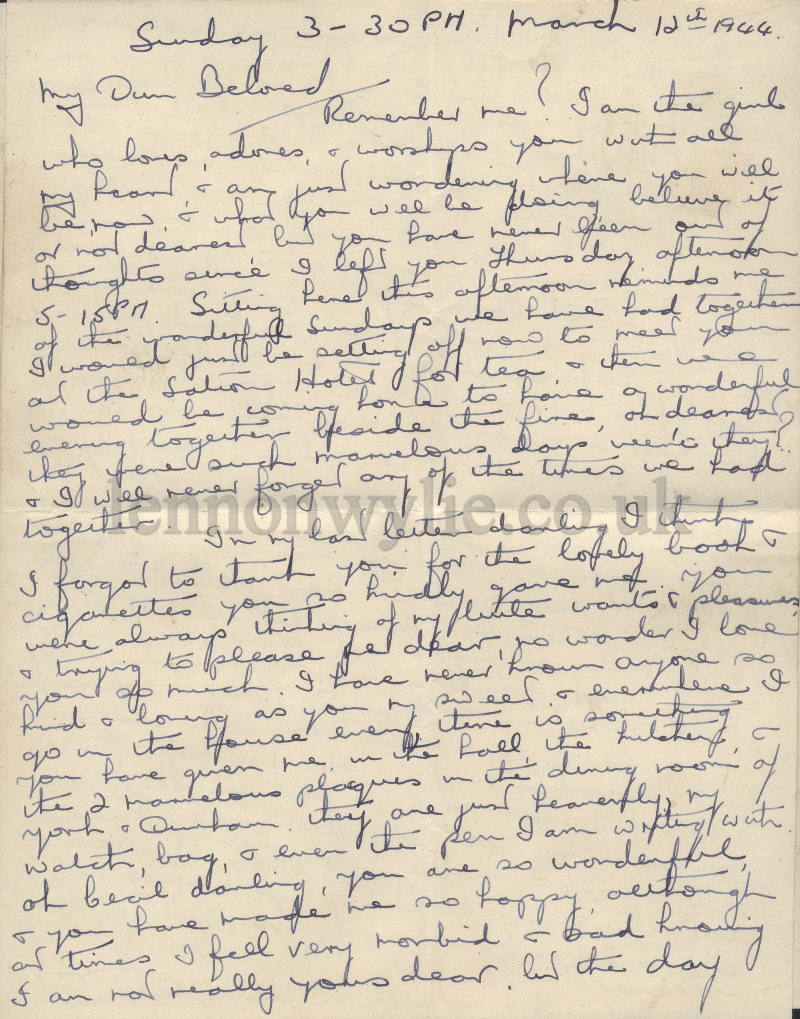 Sunday 3-30PM. March 12th 1944.
My Own Beloved
Remember me? I am the girl
who loves, adores, & worships you with all
my heart, & am just wondering where you will
be now, & what you will be doing believe it
or not dearest but you have never been out of
thoughts since I left you Thursday afternoon
5-15PM. Sitting here this afternoon reminds me
of the wonderful Sundays we have had together
I would just be setting off now to meet you
at the Sation Hotel for tea & then we
would be coming home to have a wonderful
evening together beside the fire, oh dearest
they were such marvelous days were'nt they?
& I will never forget any of the times we had
together.
lennonwylie.co.uk
In my last letter darling I think
I forgot to thank you for the lovely book &
cigarettes you so kindly gave me. you
were always thinking of my little wants & pleasures,
& trying to please me dear, no wonder I love
you so much. I have never known anyone so
kind & loving as you my sweet. & everywhere I
go in the house every time is something
you have given me in the hall, the kitchen, &
the 2 marvelous plaques in the dining room of
york & Durham. they are just heavenly, my
watch, bag, & even the pen I am writing with.
oh Cecil darling, you are so wonderful,
& you have made me so happy, although
at times I feel very morbid & sad knowing
I am not really yours dear. but the day